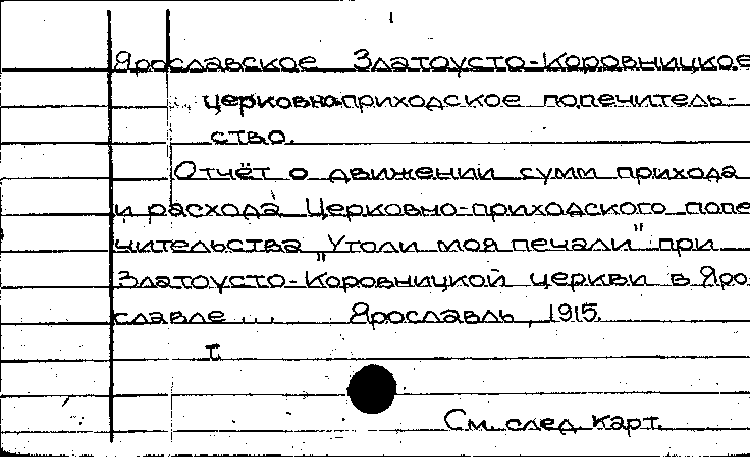 Ярославское Златоусто-Коровницкое
церковноприходское попечитель-
ство.
Отчёт о движении сумм прихода
и расхода Церковно-приходского попе
чительства „Утоли моя печали" при
Златоусто-Коровницкой церкви в Яро
славле ... Ярославль, 1915.
Т
См. след. карт.